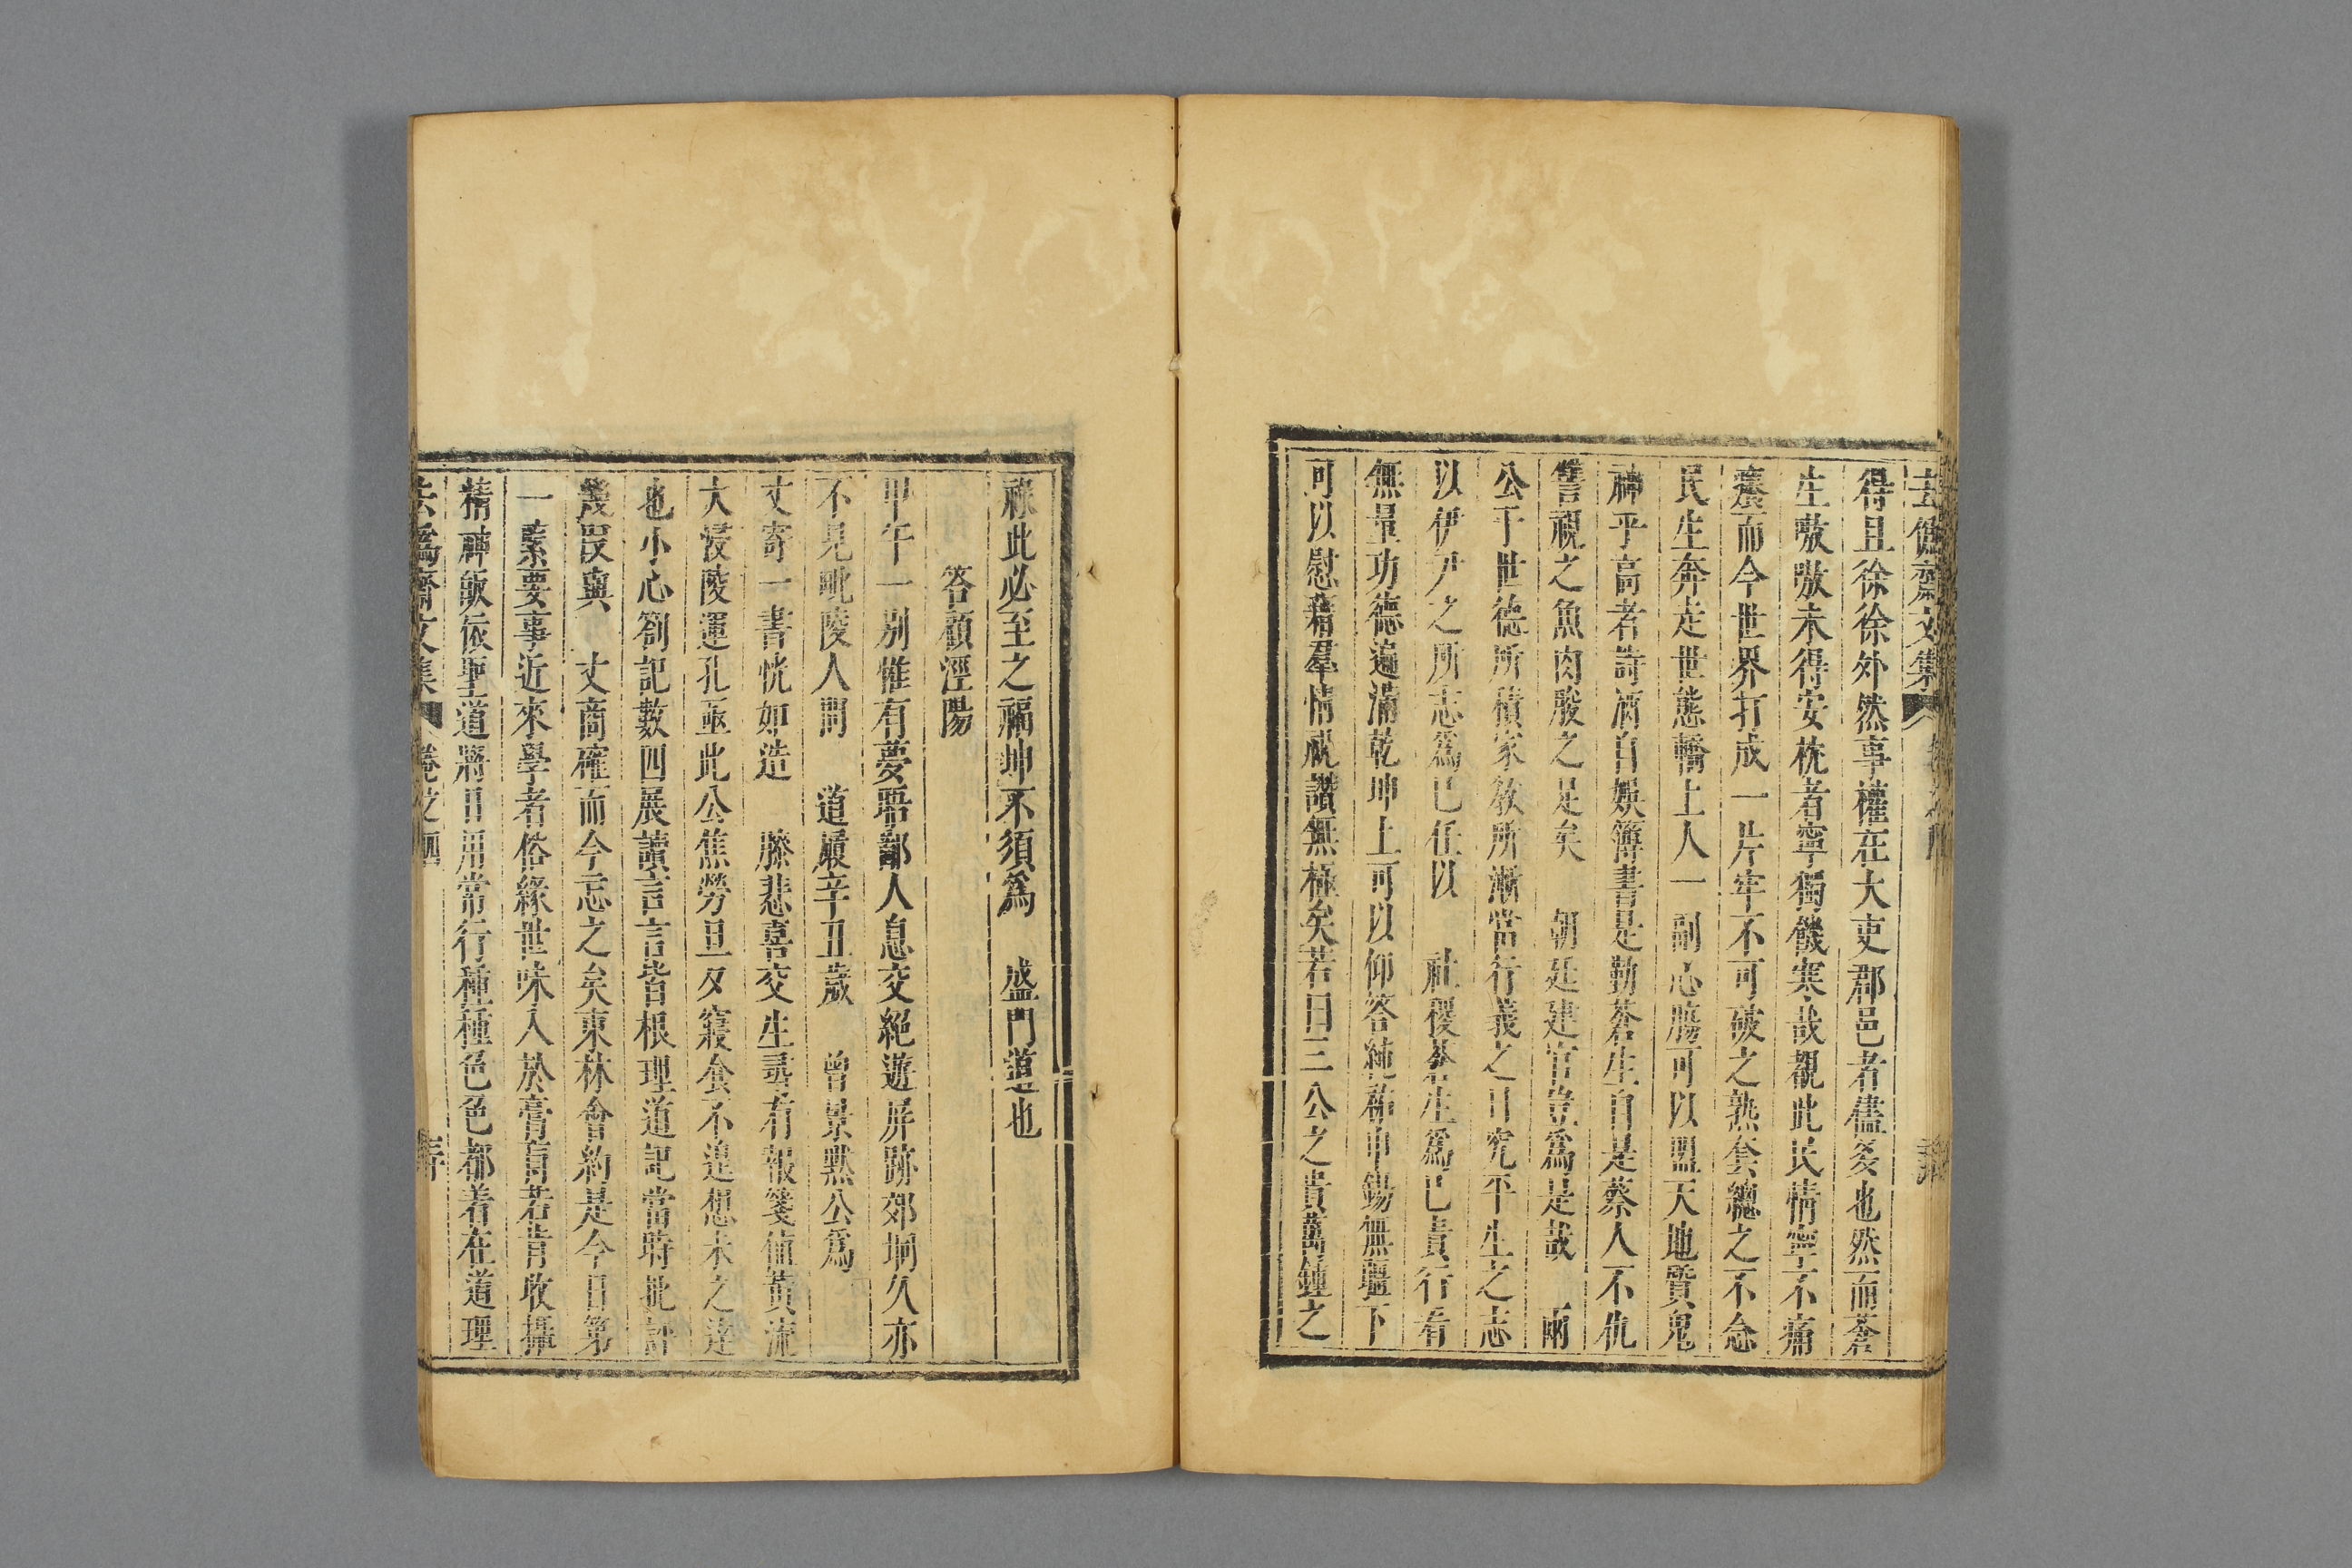 去僞齋文集
得且徐徐外然事權在大吏郡邑者儘多也然而蒼
生嗷嗷未得安枕者寧獨饑寒哉覩此民情寧不痛
瘝而今世界打成一片牢不可破之熟套總之不念
民生奔走世態轎上人一副心腸可以盟天地質鬼
神乎高者詩酒自娛簿書是勤蒼生自是蔡人不仇
讐視之魚肉殷之足矣 朝廷建官豈爲是哉 兩
公于世德所積家敎所漸當行義之日究平生之志
以伊尹之所志爲已任以 社稷蒼生爲已責行看
無量功德遍滿乾坤上可以仰答純祐申錫無疆下
可以慰藉羣情咸讚無極矣若曰三公之貴萬鍾之
祿此必至之福坤不須爲 盛門道也
答顧涇陽
甲午一別惟有夢寤鄙人息交絕遊屏跡郊坰久亦
不見毗陵人問 道履辛丑歲 曾景默公爲
丈寄一書恍如造 膝悲喜交生尋有報箋値黃流
大浸陵運孔亟此公焦勞旦夕寢食不遑想未之達
也小心劄記數四展讀言言皆根理道記當時批評
幾段與 丈商確而今忘之矣東林會約是今日第
一緊要事近來學者俗緣世味入於膏肓若肯收攝
精神皈依聖道將日用常行種種色色都着在道理
去僞齋文集 卷之四